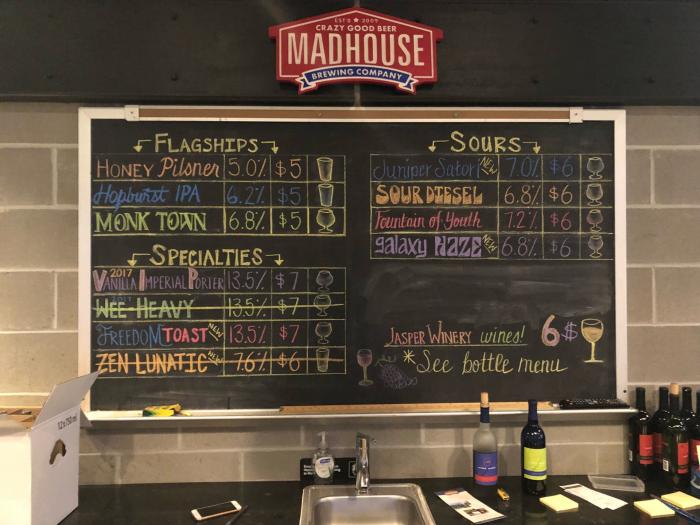 EST'D ★ 2009
CRAZY GOOD BEER
MADHOUSE
BREWING COMPANY
FLAGSHIPS
HONEY Pilsner 5.0% $5
Hopburst IPA 6.2% $5
MONK TOWN 6.8% $5
SPECIALTIES
2017
VANILLA IMPERIAL PORTER 13.5% $7
WEE-HEAVY 13.5% $7
FREEDOM TOAST NEW 13.5% $7
ZEN LUNATIC NEW 7.6% $6
SOURS
Juniper Sator NEW 7.0% $6
SOUR DIESEL 6.8% $6
Fountain of Youth 7.2% $6
galaxy HAZE NEW 6.8% $6
JASPER WINERY wines! 6$
*See bottle menu
12x750ml